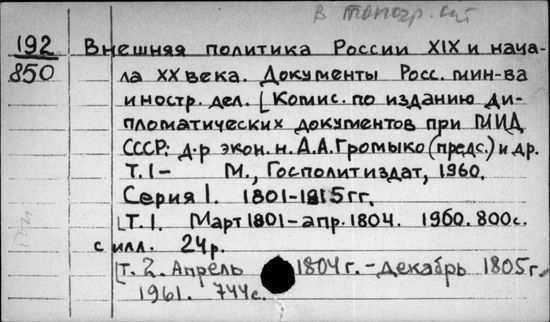 в топогр. кат
192
850
Внешняя политика России XIX и нача-
ла XX века. Документы Росс. мин-ва
иностр. дел. [Комис. по изданию ди-
пломатических документов при МИД
СССР: д-р экон. н. А.А. Громыко (предс.) и др.
Т. 1– М., Госполитиздат, 1960.
Серия 1. 1801–1815 гг.
Т. 1. Март 1801–апр. 1804. 1960. 800 с.
с илл. 24 р.
Т. 2. Апрель 1804 г.–декабрь 1805 г.
1961. 744 с.